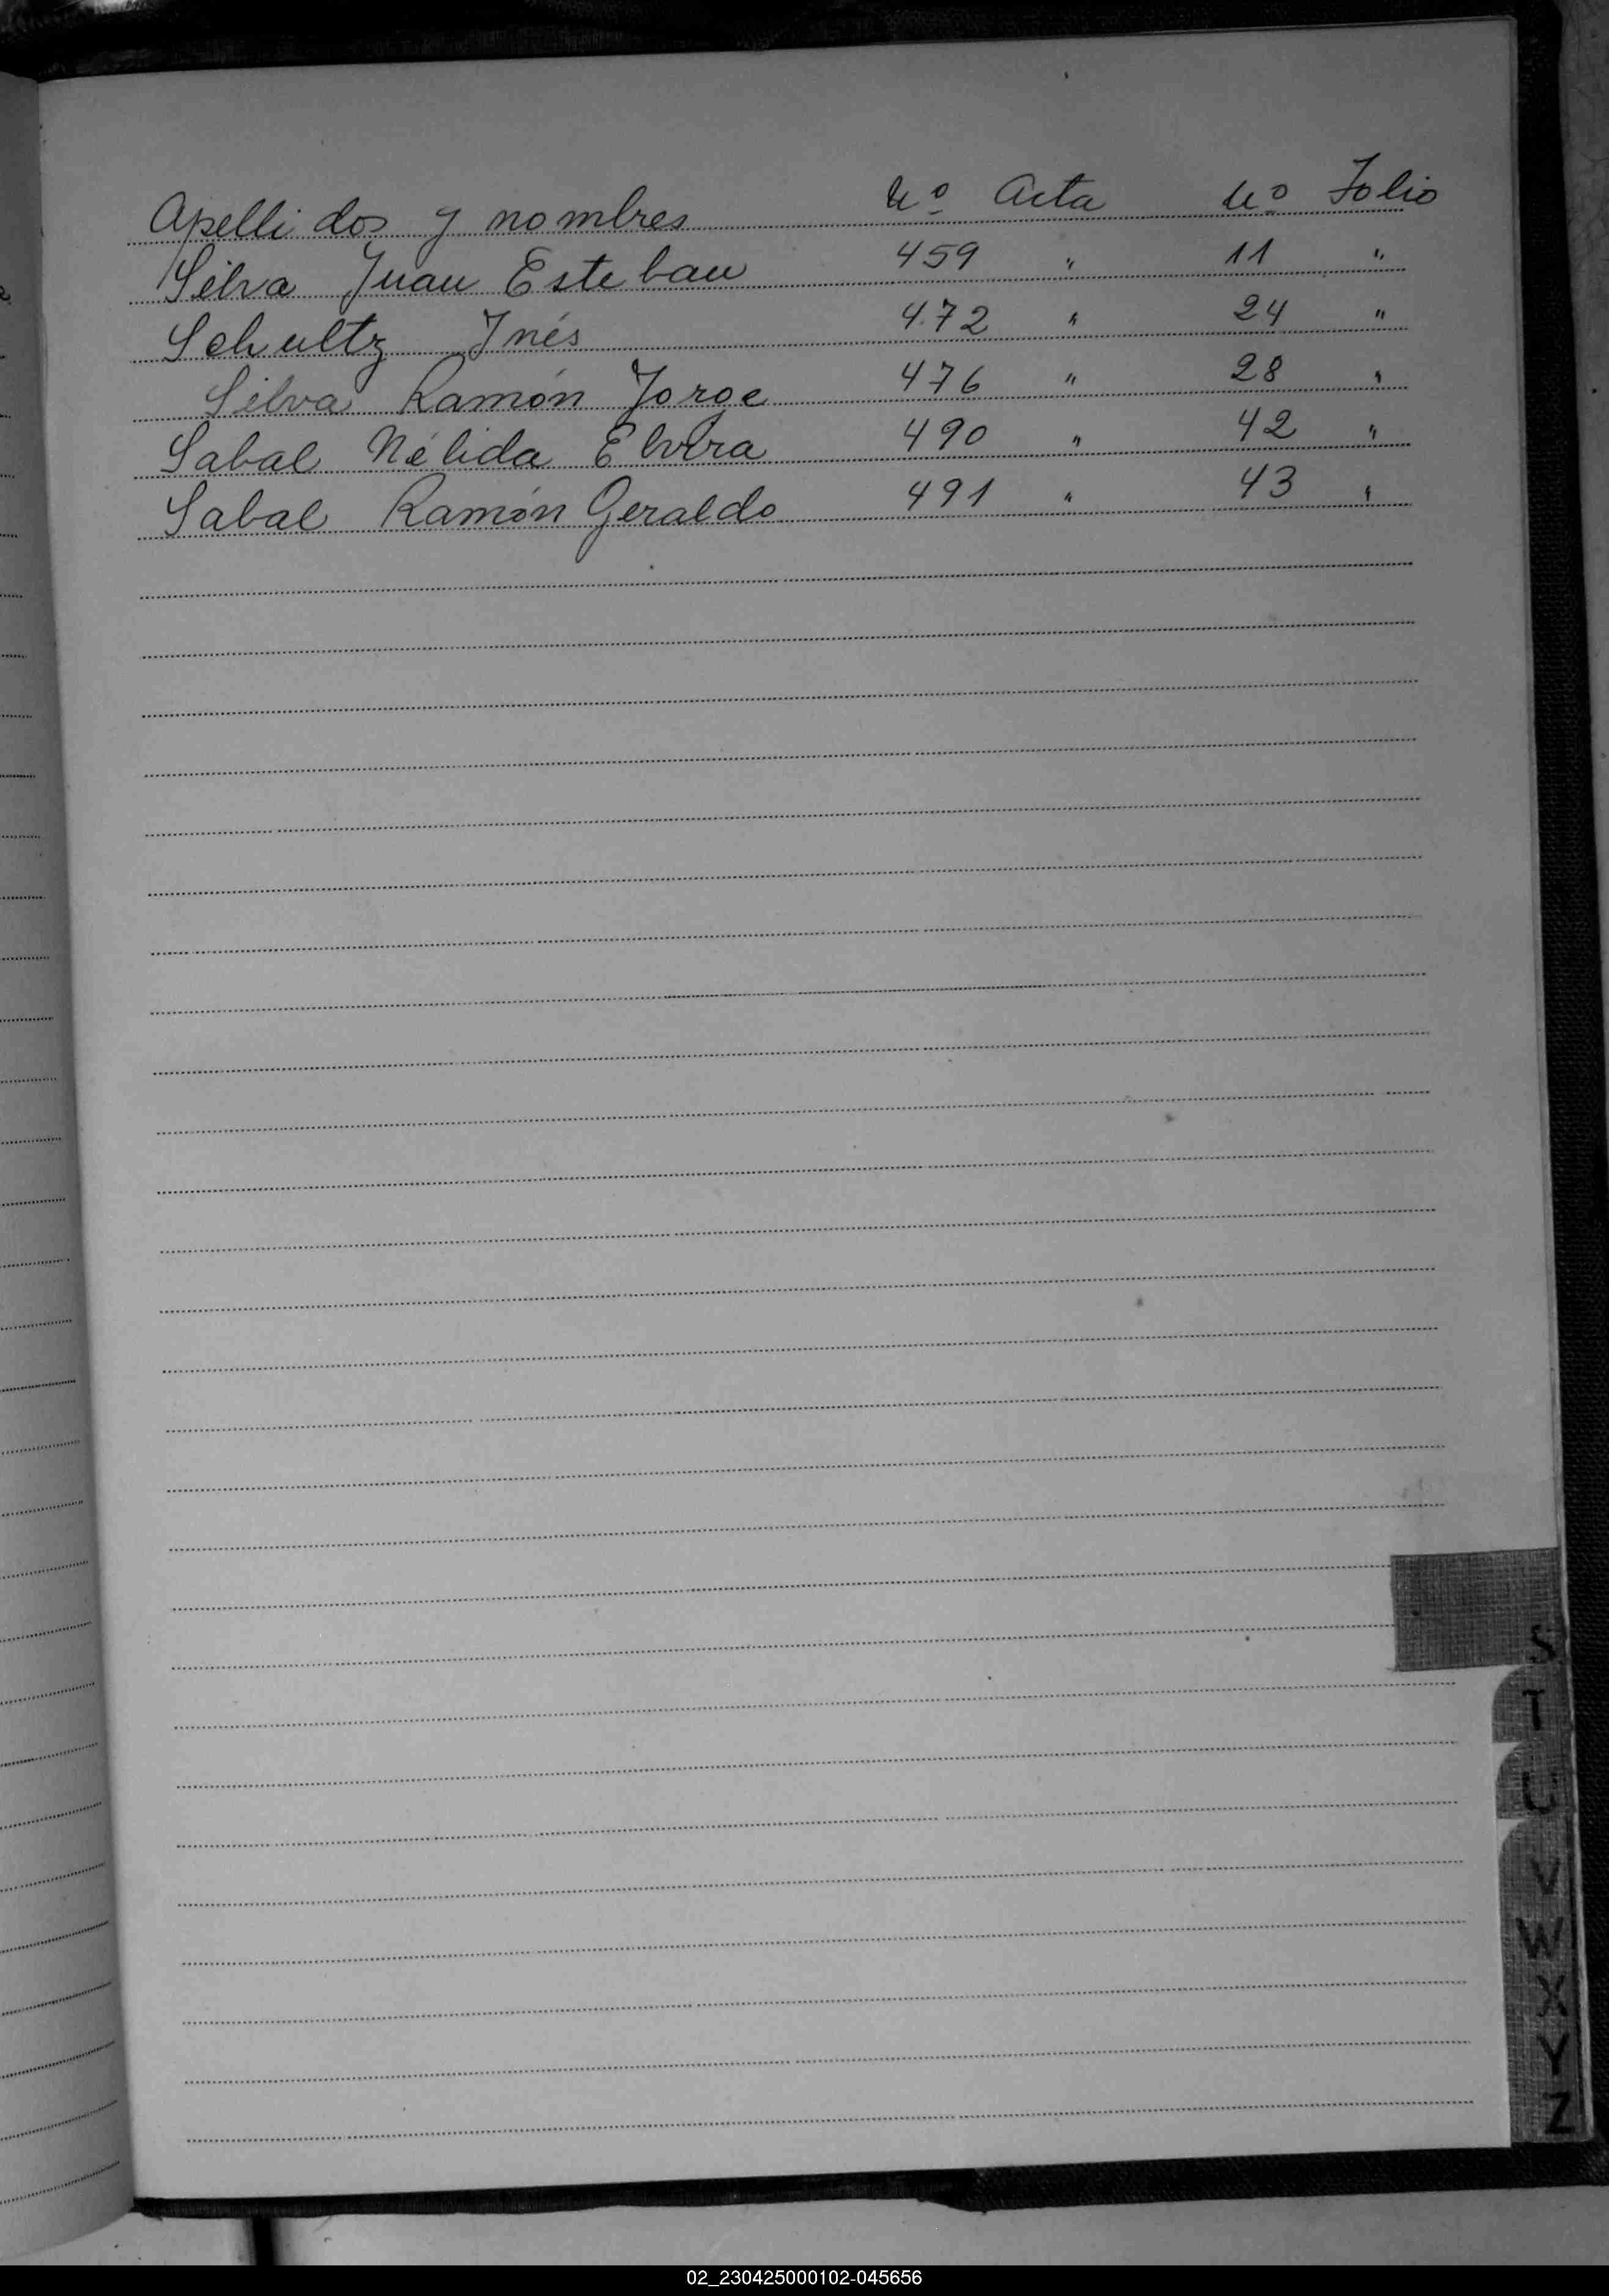 Apellidos y nombres Nº Acta Nº Folio
Silva Juan Esteban 459 " 11 "
Schultz Inés 472 " 24 "
Silva Ramón Jorge 476 " 28 "
Sabal Nélida Elvira 490 " 42 "
Sabal Ramón Geraldo 491 " 43 "
S
T
U
V
W
X
Y
Z
02_230425000102-045656